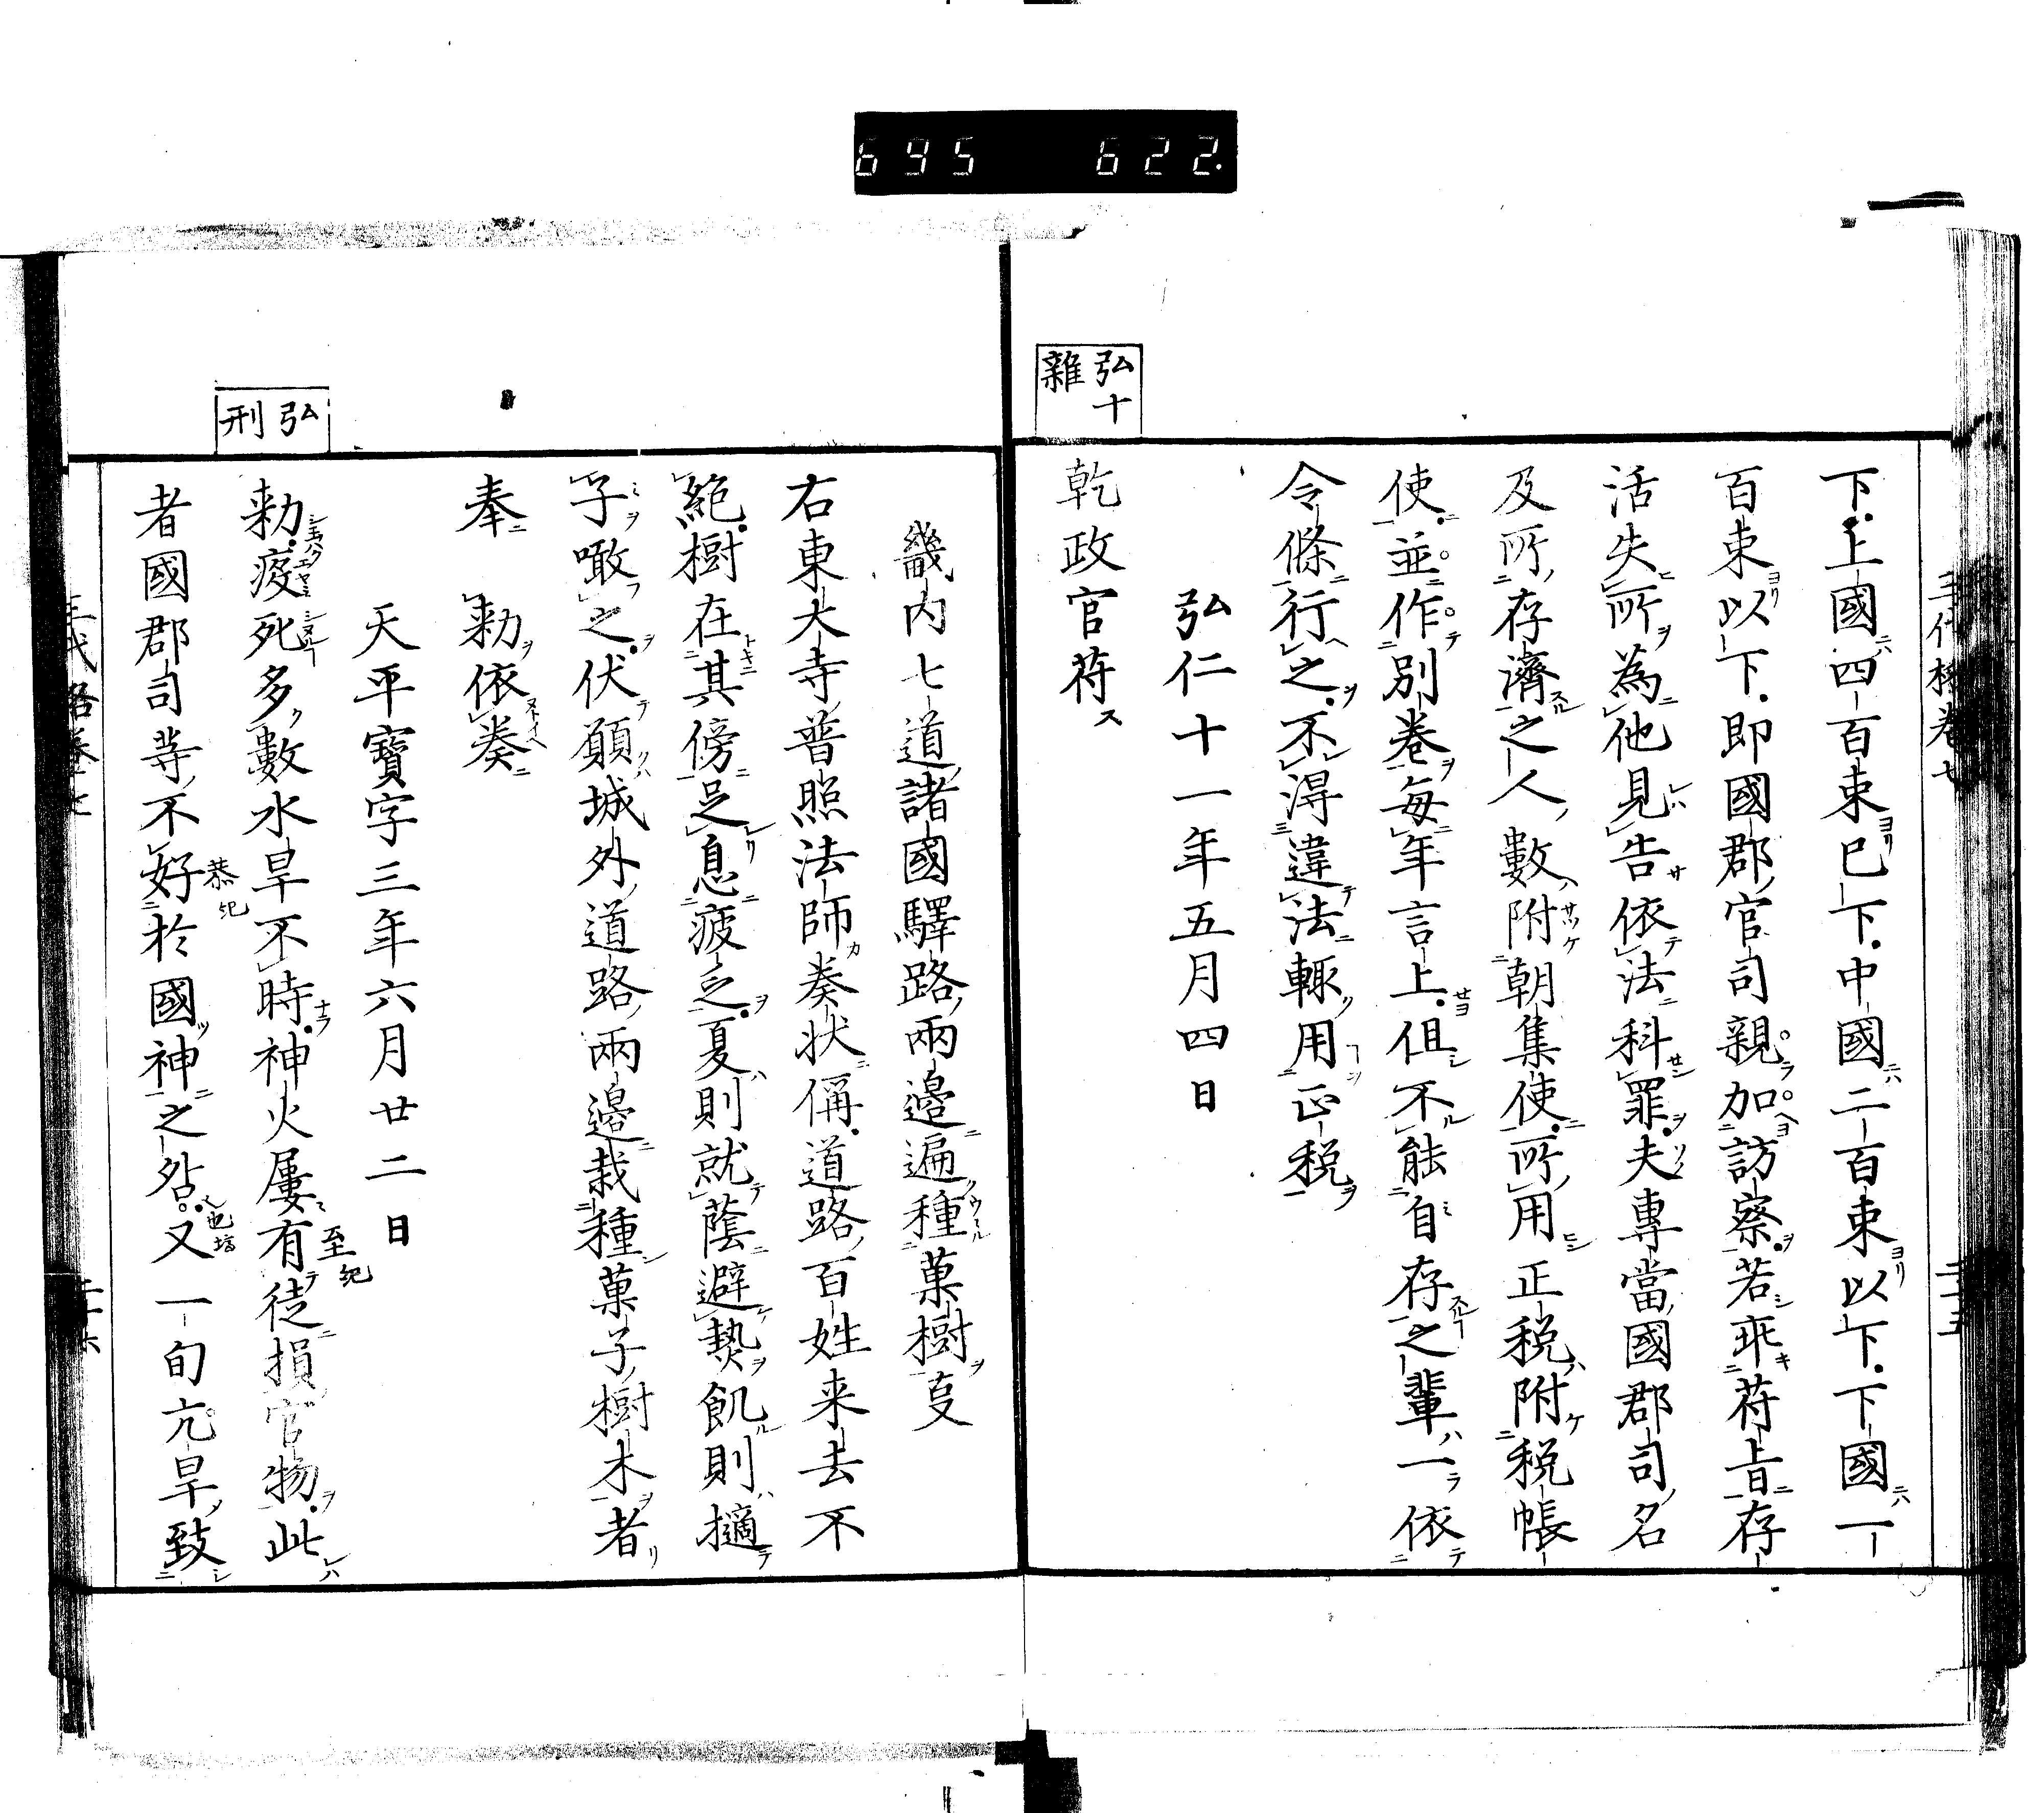 695 622.
三代格卷七
二十五
下上國四百束已下中國二百束以下下國一
百束以下即國郡官司親加訪察若乖苻旨存
活失所為他見告依法科罪夫專當國郡司名
及所存濟之人數附朝集使所用正税附税帳
使並作別卷每年言上但不能自存之輩一依
令條行之不得違法輙用正税
弘仁十一年五月四日
弘十
雜
乾政官苻
畿內七道諸國驛路兩邊遍種菓樹㕝
右東大寺普照法師奏状偁道路百姓来去不
絶樹在其傍足息疲乏夏則就蔭避𤍠飢則擿
子噉之伏願城外道路兩邊栽種菓子樹木者
奉 勅依奏
天平寶字三年六月廿二日
弘
刑
勅疫死多數水旱不時神火屢有徒損官物此
至紀
者國郡司等不好於國神之咎又一旬亢旱致
恭紀
三代格卷七
二十六